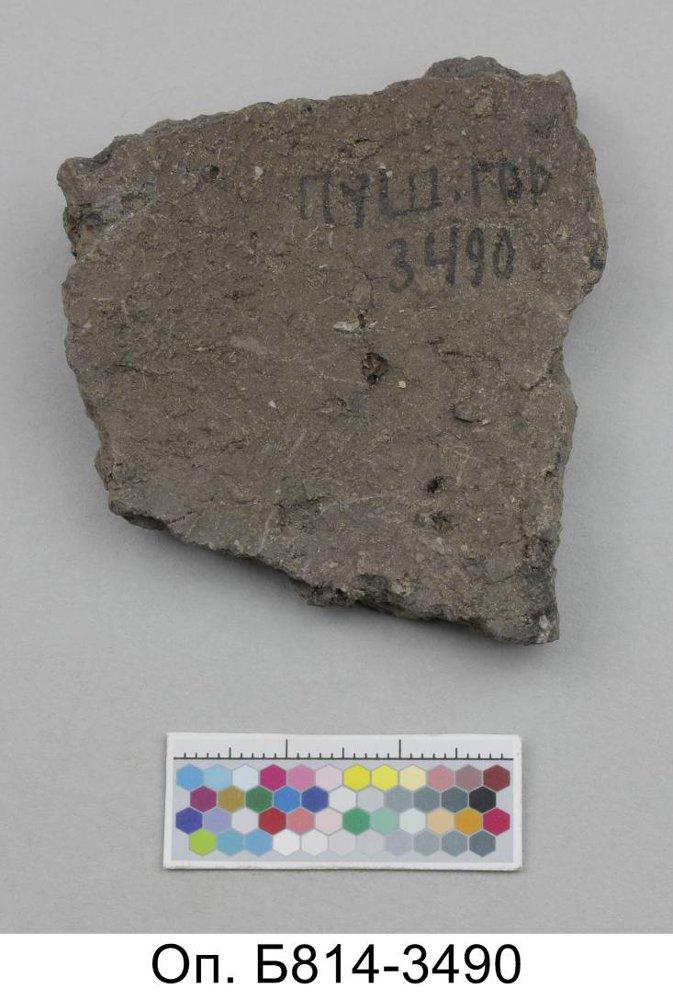 ПУШ.ГОР
3490
Оп. Б814-3490